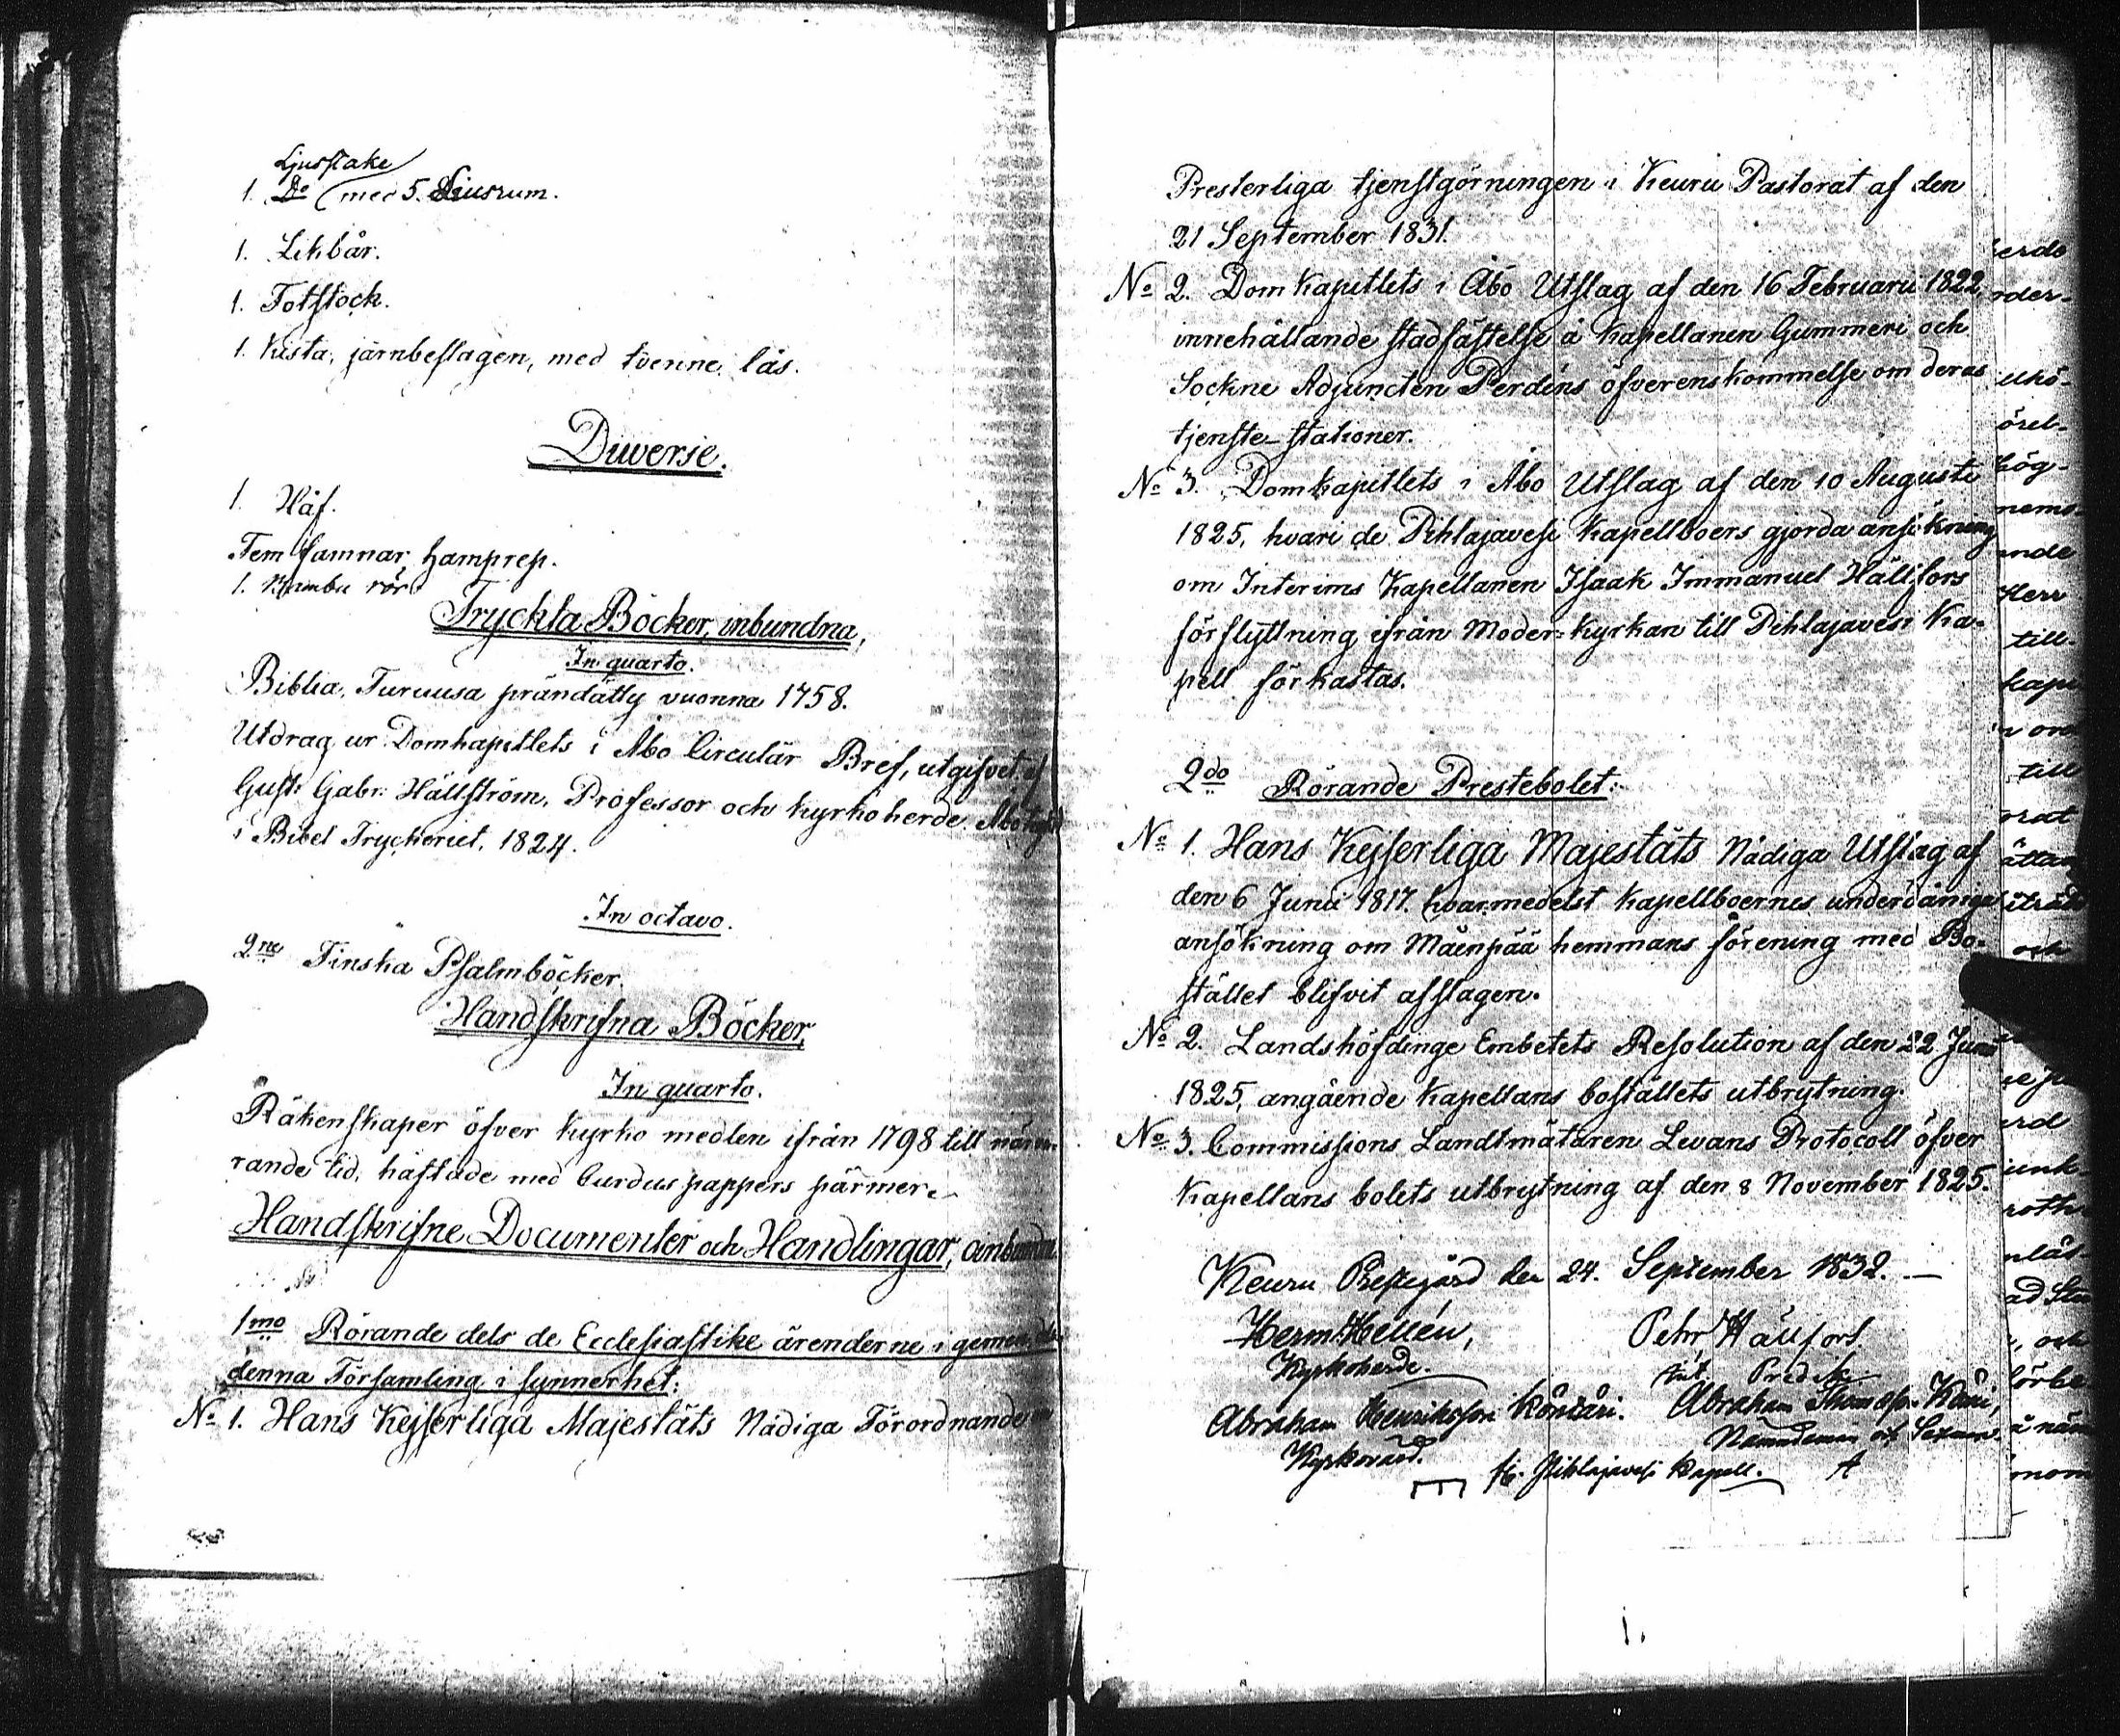 Ljusstake
1. Do med 5. Liusrum.
1. Likbår.
1. Fotstock.
1. Kista, järnbeslagen, med tvenne lås.
Diverse.
1. Håf.
Fem famnar hamprep.
1. rör
Tryckta Böcker, inbundna,
In quarto.
Biblia, Turuusa prändätty vuonna 1758.
Utdrag ur Domkapitlets i Åbo Circulär Bref, utgifvet af
Gust: Gabr: Hällström, Professor och kyrkoherde. Åbo
i Bibel Tryckeriet, 1824.
In octavo.
2ne Finska Psalmböcker.
Handskrifna Böcker,
In quarto.
Räkenskaper öfver kyrko medlen ifrån 1798 till närva-
rande tid, häftade med Curdus pappers pärmer.
Handskrifne Documenter och Handlingar, oinbundna
1mo Rörande dels de Ecclesiastike ärenderne i gemen, dels
denna Församling i synnerhet:
No 1. Hans Kejserliga Majestäts Nådiga Förordnande om
Presterliga tjenstgörningen i Keuru Pastorat af den
21 September 1831.
No 2. Domkapitlets i Åbo Utslag af den 16 Februarii 1822,
innehållande stadfästelse å Kapellanen Gummeri och
Sockne Adjuncten Perdéns öfverenskommelse om deras
tjenste-stationer.
No 3. Domkapitlets i Åbo Utslag af den 10 Augusti
1825, hvari de Pihlajavesi Kapellboers gjorda ansökning
om Interims Kapellanen Isaak Immanuel Hällfors
förflyttning ifrån Moder=kyrkan till Pihlajavesi Ka-
pell förkastas.
2do Rörande Prestebolet:
No 1. Hans Kejserliga Majestäts Nådiga Utslag af
den 6 Junii 1817. hvarmedelst Kapellboernes underdåniga
ansökning om Mäenpää hemmans förening med Bo-
stället blifvit afslagen.
No 2. Landshöfdinge Embetets Resolution af den 22 Junii
1825, angående Kapellans boställets utbrytning.
No 3. Commissions Landtmätaren Levans Protocoll öfver
Kapellans bolets utbrytning af den 8 November 1825.
Keuru Prestegård den 24. September 1832.
Herm: Hellén, Petr Hällfors
Kyrkoherde. Predik.
Abraham Henriksson Abraham Thomasson
Kyrkovärd. Nämndeman och Sexman.
Pihlajavesi Kapell.
1.